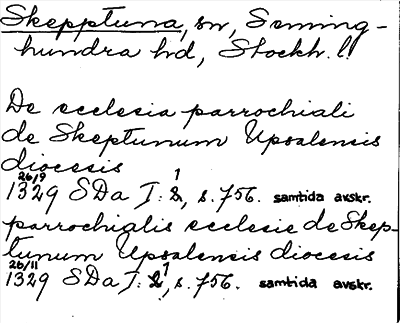 Skepptuna, sn, Seming-
hundra hd, Stockh. l.
De ecclesia parrochiali
de Skeptunum Upsalensis
diocesis
26/9
1329 SDa I: 1, s. 756. samtida avskr.
parrochialis ecclesie de Skep-
tunum Upsalensis diocesis
26/11
1329 SDa I: 1, s. 756. samtida avskr.